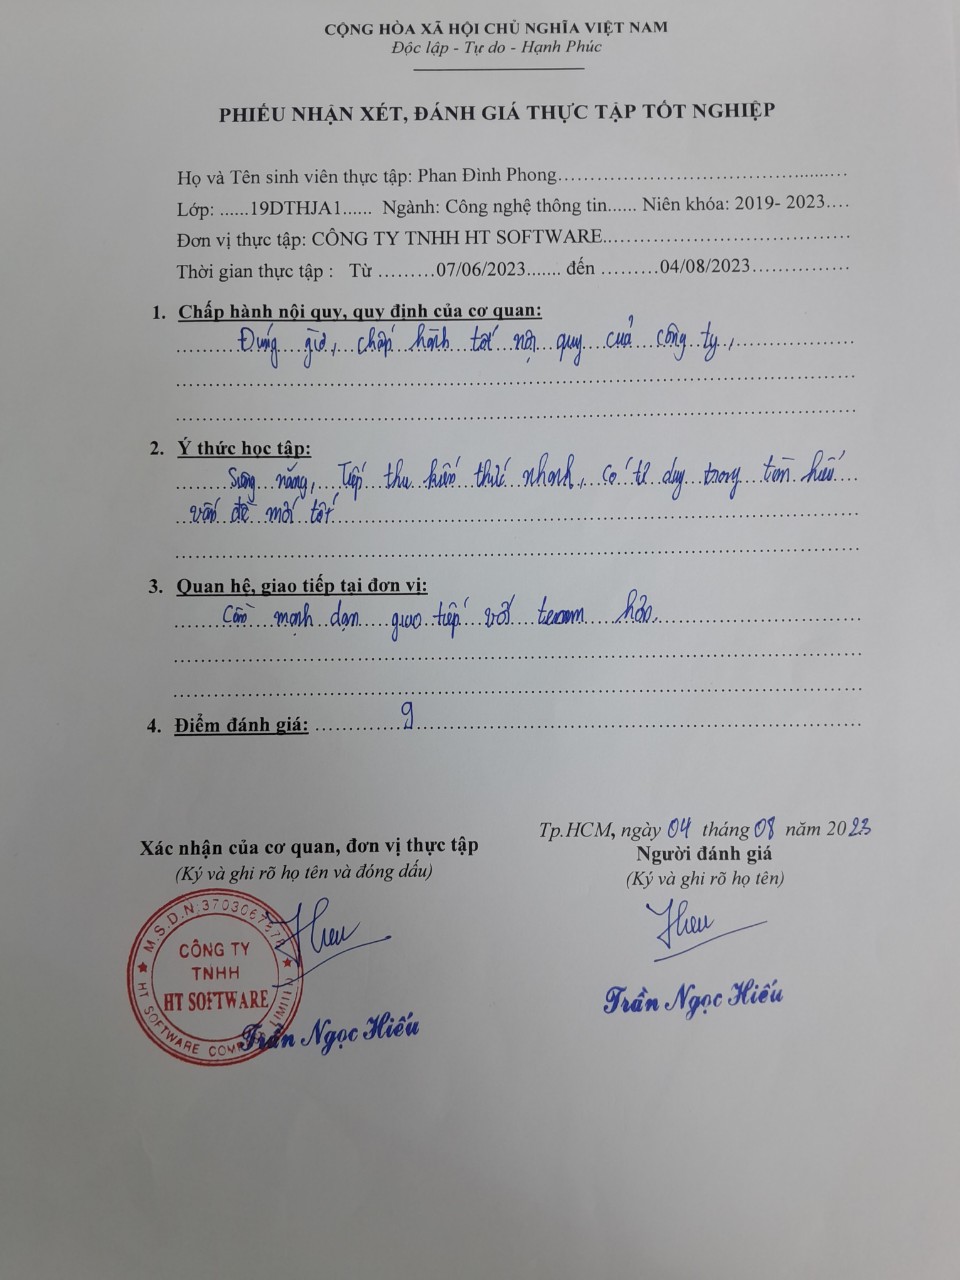 CỘNG HÒA XÃ HỘI CHỦ NGHĨA VIỆT NAM
Độc lập - Tự do - Hạnh Phúc
PHIẾU NHẬN XÉT, ĐÁNH GIÁ THỰC TẬP TỐT NGHIỆP
Họ và Tên sinh viên thực tập: Phan Đình Phong
Lớp: ......19DTHJA1...... Ngành: Công nghệ thông tin...... Niên khóa: 2019- 2023....
Đơn vị thực tập: CÔNG TY TNHH HT SOFTWARE
Thời gian thực tập : Từ .........07/06/2023....... đến .........04/08/2023
1. Chấp hành nội quy, quy định của cơ quan:
Đúng giờ, chấp hành tốt nội quy của công ty,
2. Ý thức học tập:
Siêng năng, Tiếp thu kiến thức nhanh, có tư duy trong tìm hiểu
vấn đề mới tốt
3. Quan hệ, giao tiếp tại đơn vị:
Cần mạnh dạn giao tiếp với team hơn.
4. Điểm đánh giá: 9
Tp.HCM, ngày 04 tháng 08 năm 2023
Xác nhận của cơ quan, đơn vị thực tập
Người đánh giá
(Ký và ghi rõ họ tên và đóng dấu)
(Ký và ghi rõ họ tên)
Hieu
Hieu
M.S.D.N:
CÔNG TY
TNHH
HT SOFTWARE
HT SOFTWARE LIMITED
Trần Ngọc Hiếu
Trần Ngọc Hiếu